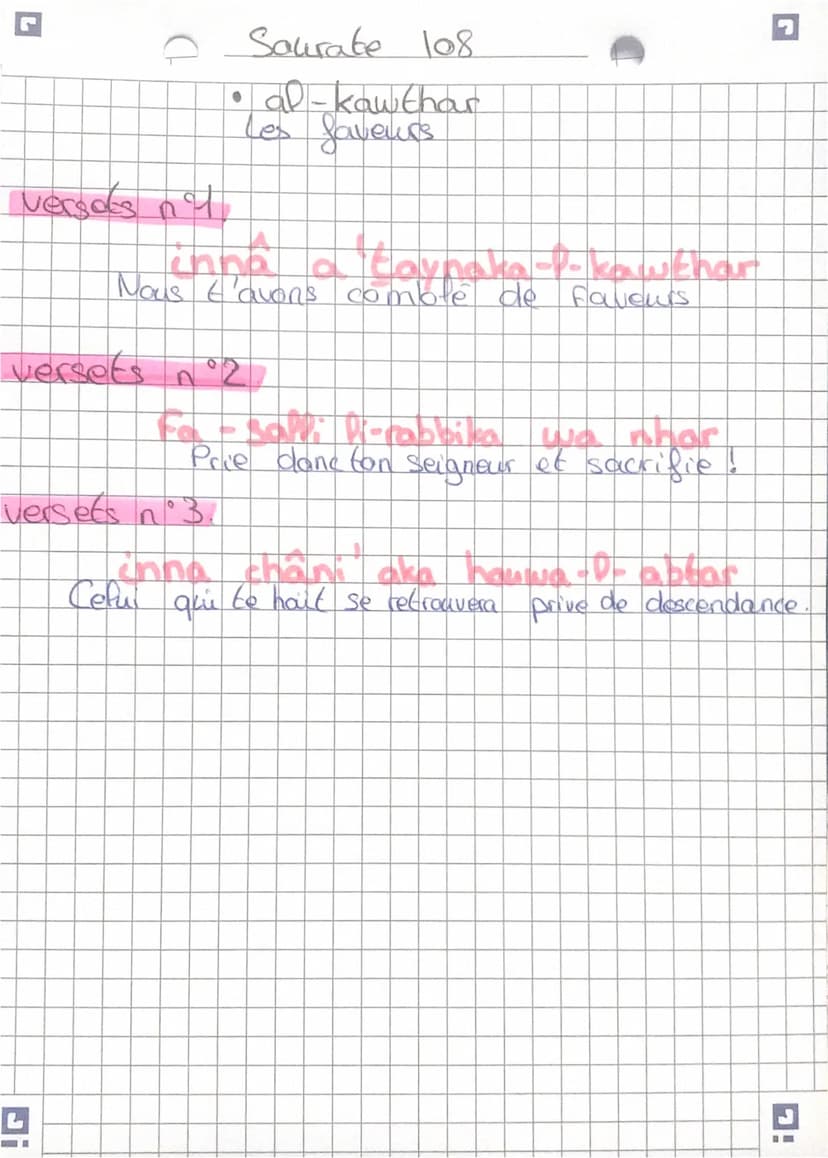 Sourate 108
• al-kawthar
Les faveurs
versets n°1.
innâ a'taynaka-l-kawthar
Nous t'avons comblé de faveurs
versets n°2.
Fa-salli li-rabbika wa nhar
Prie donc ton seigneur et sacrifie !
versets n°3.
inna châni'aka houwa-l-abtar
Celui qui te hait se retrouvera privé de descendance.